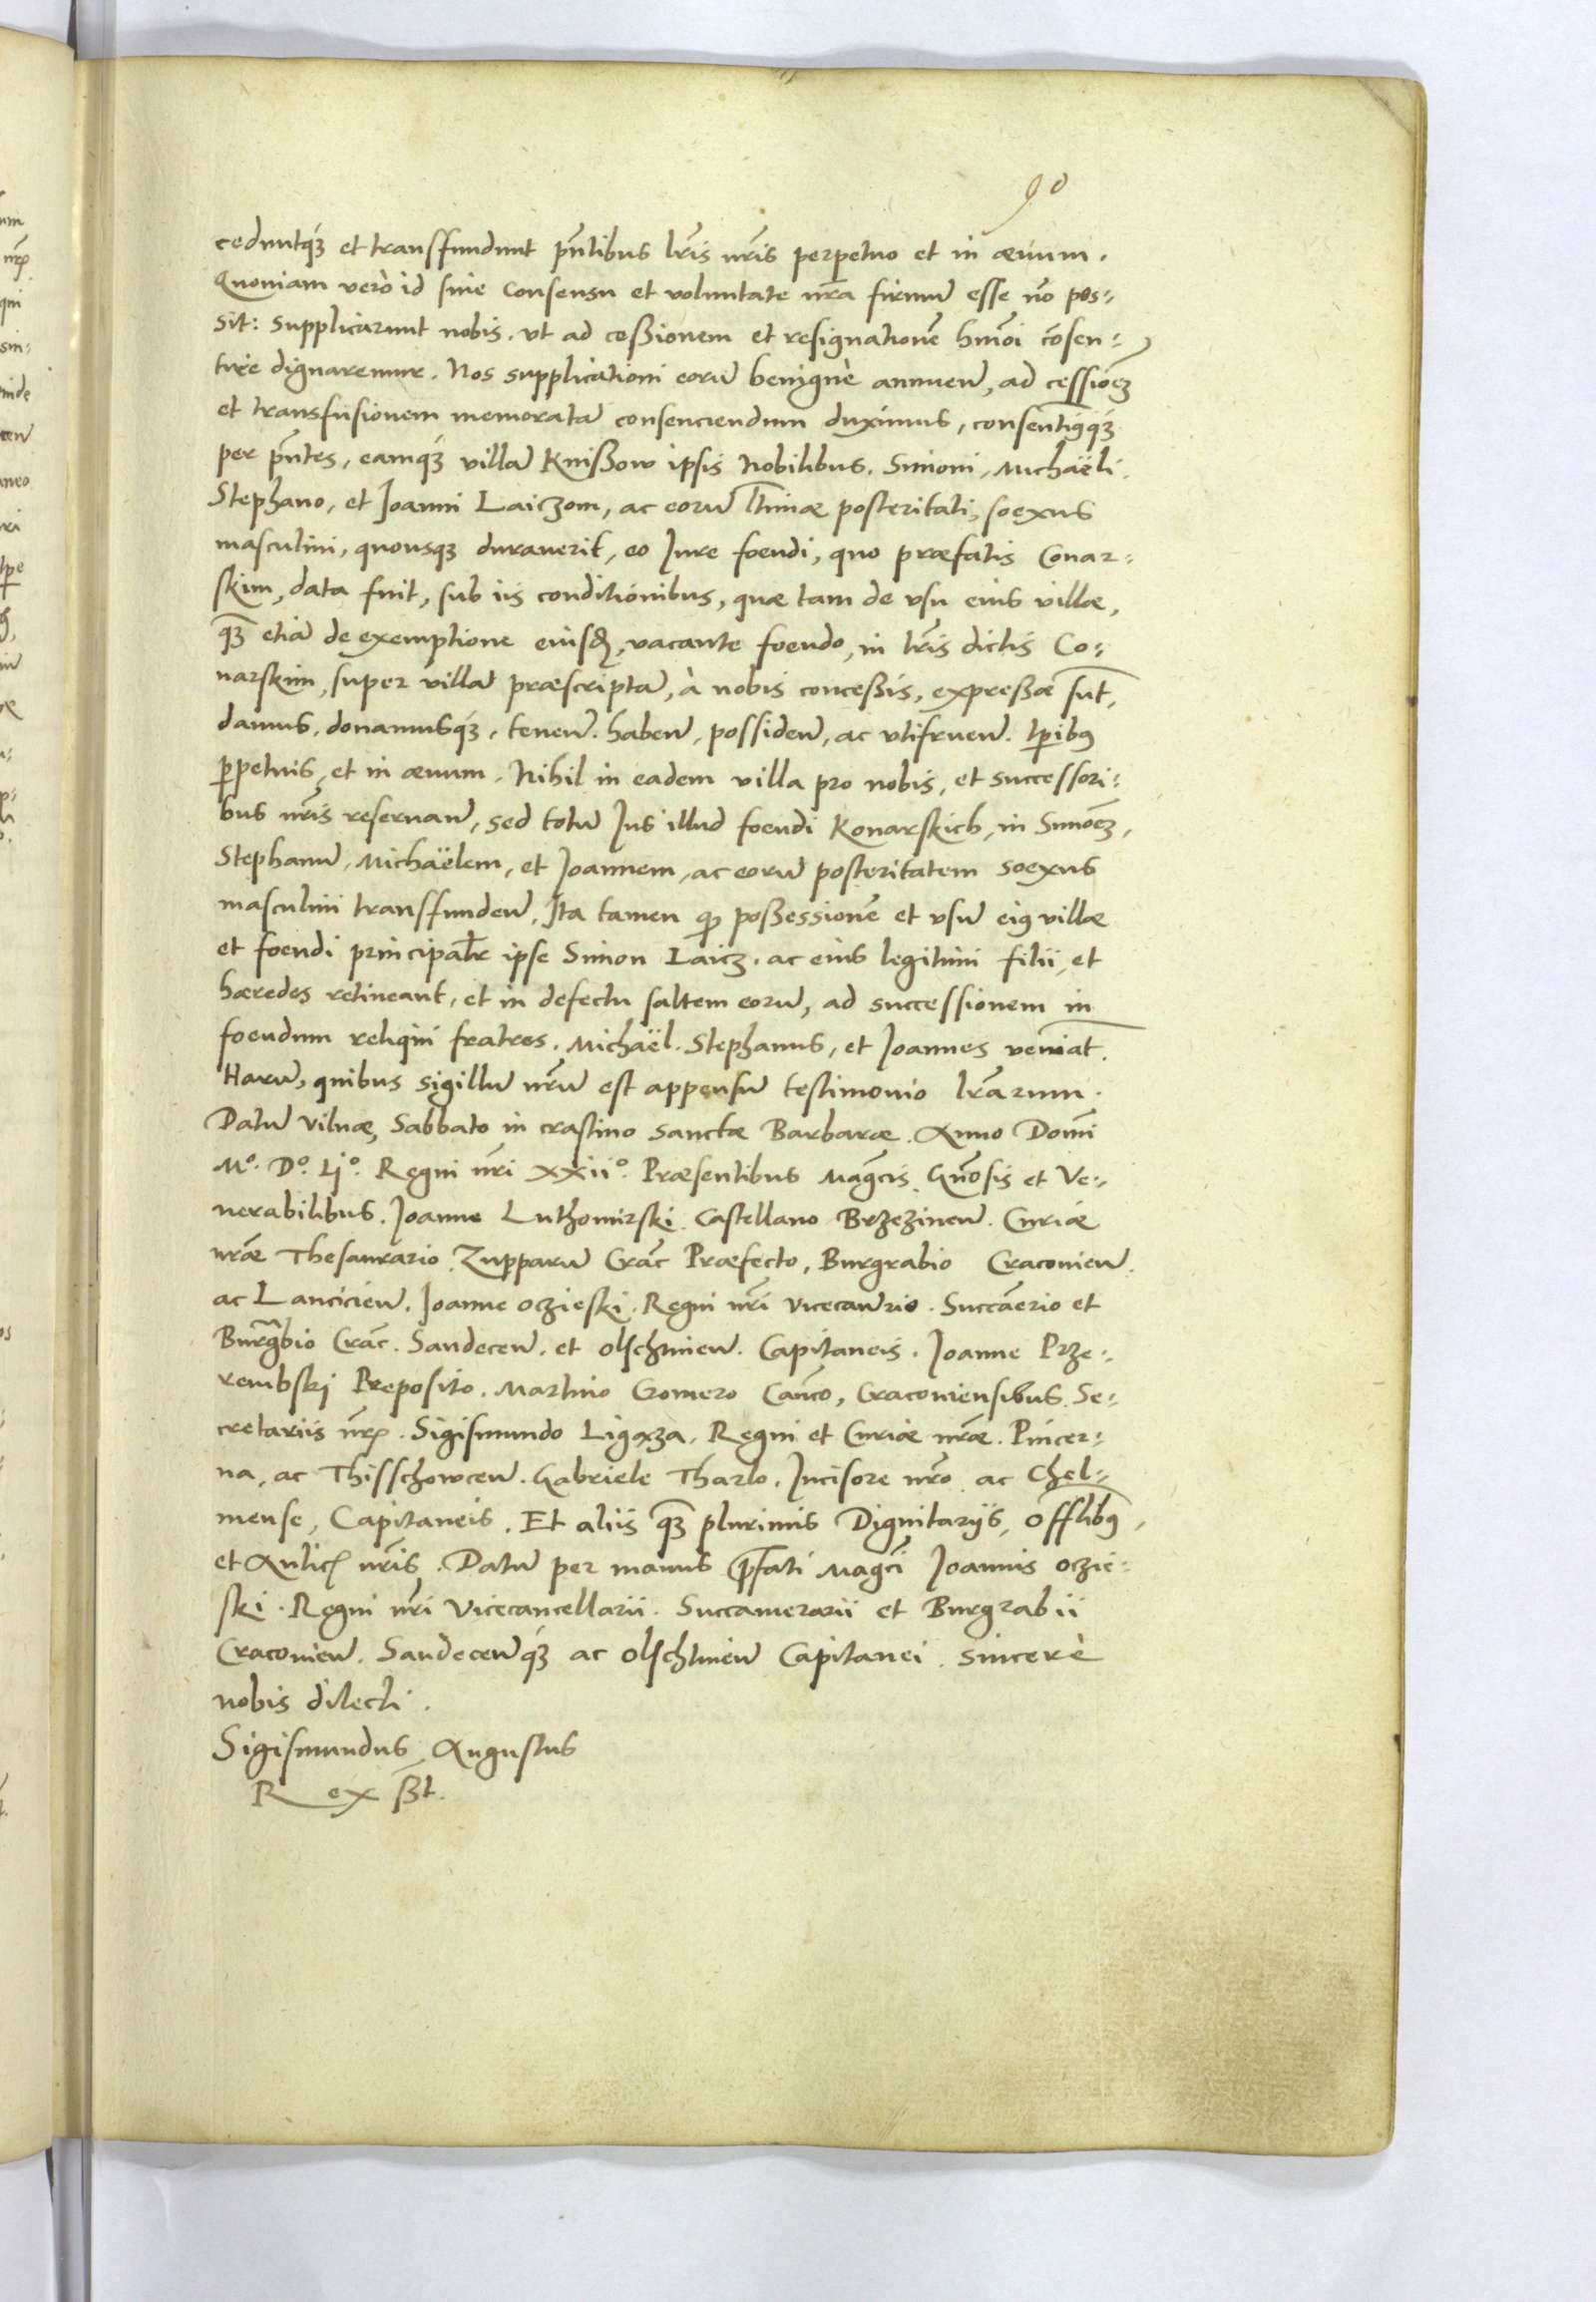 90
ceduntq́ꝫ et transfundunt pñtibus lr̃is nr̃is perpetuo et in æuum.
Quoniam verò id sine consensu et voluntate nr̃a firmum̃ esse nõ pos⸗
sit: supplicarunt nobis. vt ad ceßionem et resignationẽ hm̃oi cõsen⸗
tire dignaremur. Nos supplicationi eorũ benignè annueñ, ad cessioẽꝫ
et transfusionem memoratã consenciendum duximus, consentimꝰq́ꝫ
per pñtes, eamq́ꝫ villã Knißow ipsis Nobilibus. Simoni, Michaëli.
Stephano, et Joanni Laiczom, ac eorũ ltimæ posteritati, soexus
masculini, quousqꝫ durauerit, eo Jure foendi, quo præfatis Conar⸗
skim, data fuit, sub iis conditionibus, quæ tam de vsu eius villæ,
qꝫ̃ etiã de exemptione eiusdꝫ, vacante foendo, in lr̃is dictis Co⸗
narskim, super villã præscriptã, à nobis conceßis, expreßæ sũt,
damus. donamusq́ꝫ. teneñ. habeñ, possideñ, ac vtifrueñ. tp̃ibꝰ
ꝑpetuis, et in æuum. Nihil in eadem villa pro nobis, et successori⸗
bus nr̃is reseruañ, sed totũ Jus illud foendi Konarskich, in Simoẽꝫ,
Stephanũ, Michaëlem, et Joannem, ac eorũ posteritatem soexus
masculini transfundeñ. Ita tamen ꝙ poßessionẽ et vsũ eiꝰ villæ
et foendi principalr̃ ipse Simon Laicz. ac eius legitimi filii, et
hæredes retineant, et in defectu saltem eorũ, ad successionem in
foendum reliqui fratres. Michaël. Stephanus, et Joannes veniãt.
Harũ, quibus sigillũ nr̃ũ est appensũ testimonio lr̃arum.
Datũ Vilnæ, Sabbato in crastino sanctæ Barbaræ. Anno Domĩ
Mº. Dº. Ljº. Regni nr̃i xxiiº. Præsentibus Magc̃is. Gñosis et Ve⸗
nerabilibus. Joanne Luthomirski. Castellano Brzezineñ. Curiæ
nr̃æ Thesaurario. Zupparũ Crac̃ Præfecto, Burgrabio Cracovieñ.
ac Lancicieñ. Joanne oczieski. Regni nr̃i Vicecañrio. Succãerio et
Burgr̃bio Crac̃. Sandeceñ. et olschtineñ. Capitaneis. Joanne Prze⸗
rembski Preposito. Martino Cromero Cañco, Cracoviensibus. Se⸗
cretariis nr̃ꝝ. Sigismundo Ligęza, Regni et Curiæ nr̃æ. Pincer⸗
na, ac Thisschowceñ. Gabriele Tharlo. Incisore nr̃o ac Chel⸗
mense, Capitaneis. Et aliis qꝫ̃ plurimis Dignitariis, Offlibꝰ,
et Aulicꝭ nr̃is. Datũ per manus p̃fati Magc̃i Joannis oczie⸗
ski. Regni nr̃i Vicecancellarii. Succamerarii et Burgrabii
Cracovieñ. Sandeceñq́ꝫ ac olschtineñ Capitanei. sincerè
nobis dilecti.
Sigismundus Augustus
Rex ßt.